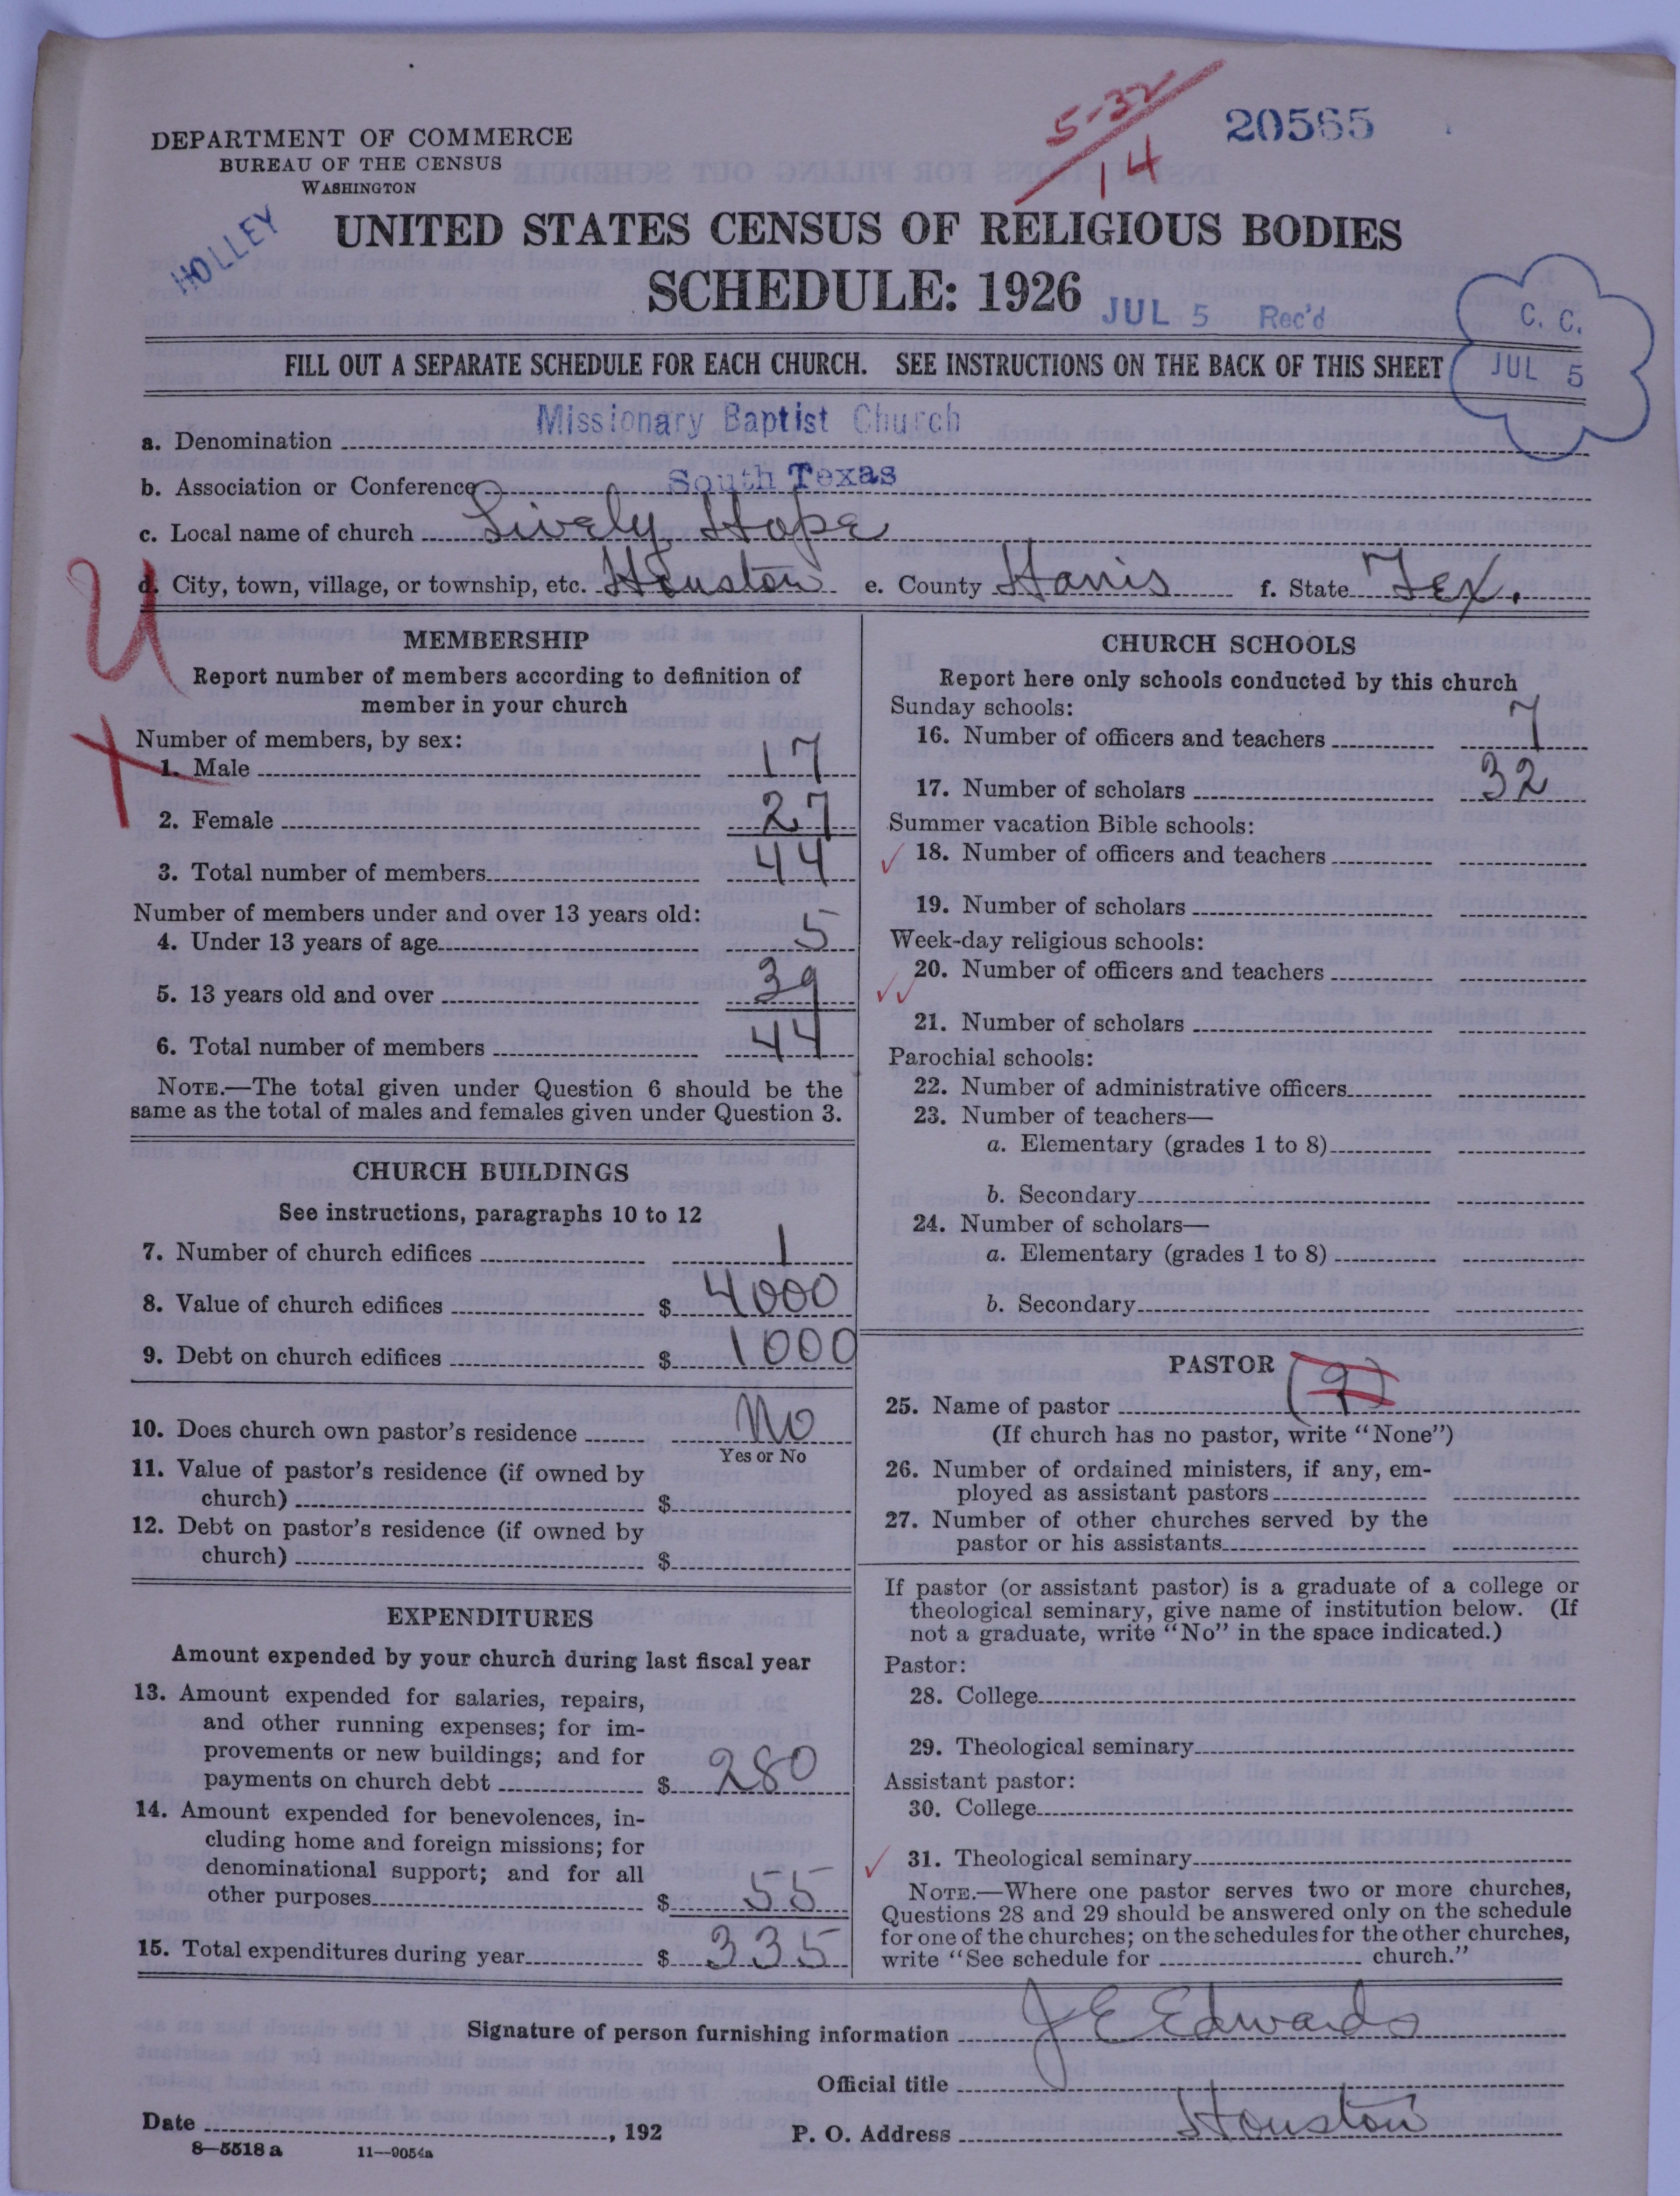 5-32
14
20565
DEPARTMENT OF COMMERCE
BUREAU OF THE CENSUS
WASHINGTON
HOLLEY
UNITED STATES CENSUS OF RELIGIOUS BODIES
SCHEDULE: 1926
JUL 5 Rec'd
C. C.
JUL 5
FILL OUT A SEPARATE SCHEDULE FOR EACH CHURCH. SEE INSTRUCTIONS ON THE BACK OF THIS SHEET
a. Denomination Missionary Baptist Church
b. Association or Conference South Texas
c. Local name of church Lively Hope
d. City, town, village, or township, etc. Houston e. County Harris f. State Tex.
U
X
MEMBERSHIP
Report number of members according to definition of
member in your church
Number of members, by sex:
1. Male 17
2. Female 27
3. Total number of members 44
Number of members under and over 13 years old:
4. Under 13 years of age 5
5. 13 years old and over 39
6. Total number of members 44
NOTE.—The total given under Question 6 should be the
same as the total of males and females given under Question 3.
CHURCH BUILDINGS
See instructions, paragraphs 10 to 12
7. Number of church edifices 1
8. Value of church edifices $ 4000
9. Debt on church edifices $ 1000
10. Does church own pastor's residence No
Yes or No
11. Value of pastor's residence (if owned by
church) $
12. Debt on pastor's residence (if owned by
church) $
EXPENDITURES
Amount expended by your church during last fiscal year
13. Amount expended for salaries, repairs,
and other running expenses; for im-
provements or new buildings; and for
payments on church debt $ 280
14. Amount expended for benevolences, in-
cluding home and foreign missions; for
denominational support; and for all
other purposes $ 55
15. Total expenditures during year $ 335
CHURCH SCHOOLS
Report here only schools conducted by this church
Sunday schools:
16. Number of officers and teachers 7
17. Number of scholars 32
Summer vacation Bible schools:
18. Number of officers and teachers
19. Number of scholars
Week-day religious schools:
20. Number of officers and teachers
21. Number of scholars
Parochial schools:
22. Number of administrative officers
23. Number of teachers—
a. Elementary (grades 1 to 8)
b. Secondary
24. Number of scholars—
a. Elementary (grades 1 to 8)
b. Secondary
PASTOR
25. Name of pastor
(If church has no pastor, write "None")
26. Number of ordained ministers, if any, em-
ployed as assistant pastors
27. Number of other churches served by the
pastor or his assistants
If pastor (or assistant pastor) is a graduate of a college or
theological seminary, give name of institution below. (If
not a graduate, write "No" in the space indicated.)
Pastor:
28. College
29. Theological seminary
Assistant pastor:
30. College
31. Theological seminary
NOTE.—Where one pastor serves two or more churches,
Questions 28 and 29 should be answered only on the schedule
for one of the churches; on the schedules for the other churches,
write "See schedule for church."
Signature of person furnishing information J E Edwards
Official title
Date , 192
P. O. Address Houston
8—5518 a 11—9054a